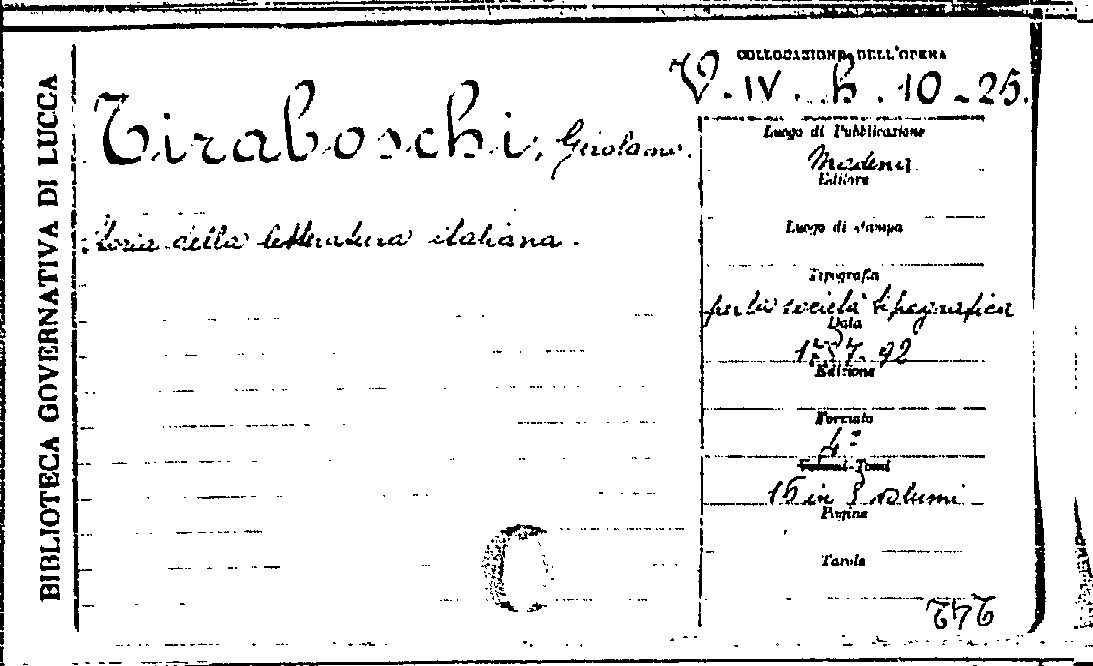 BIBLIOTECA GOVERNATIVA DI LUCCA
COLLOCAZIONE DELL'OPERA
V. IV. h. 10-25.
Tiraboschi, Girolamo.
Storia della letteratura italiana.
Luogo di Pubblicazione
Modena
Editore
Luogo di stampa
Tipografia
per la società tipografica
Data
1787-92
Edizione
Formato
4°
Volumi-Tomi
in 9 volumi
Pagine
Tavole